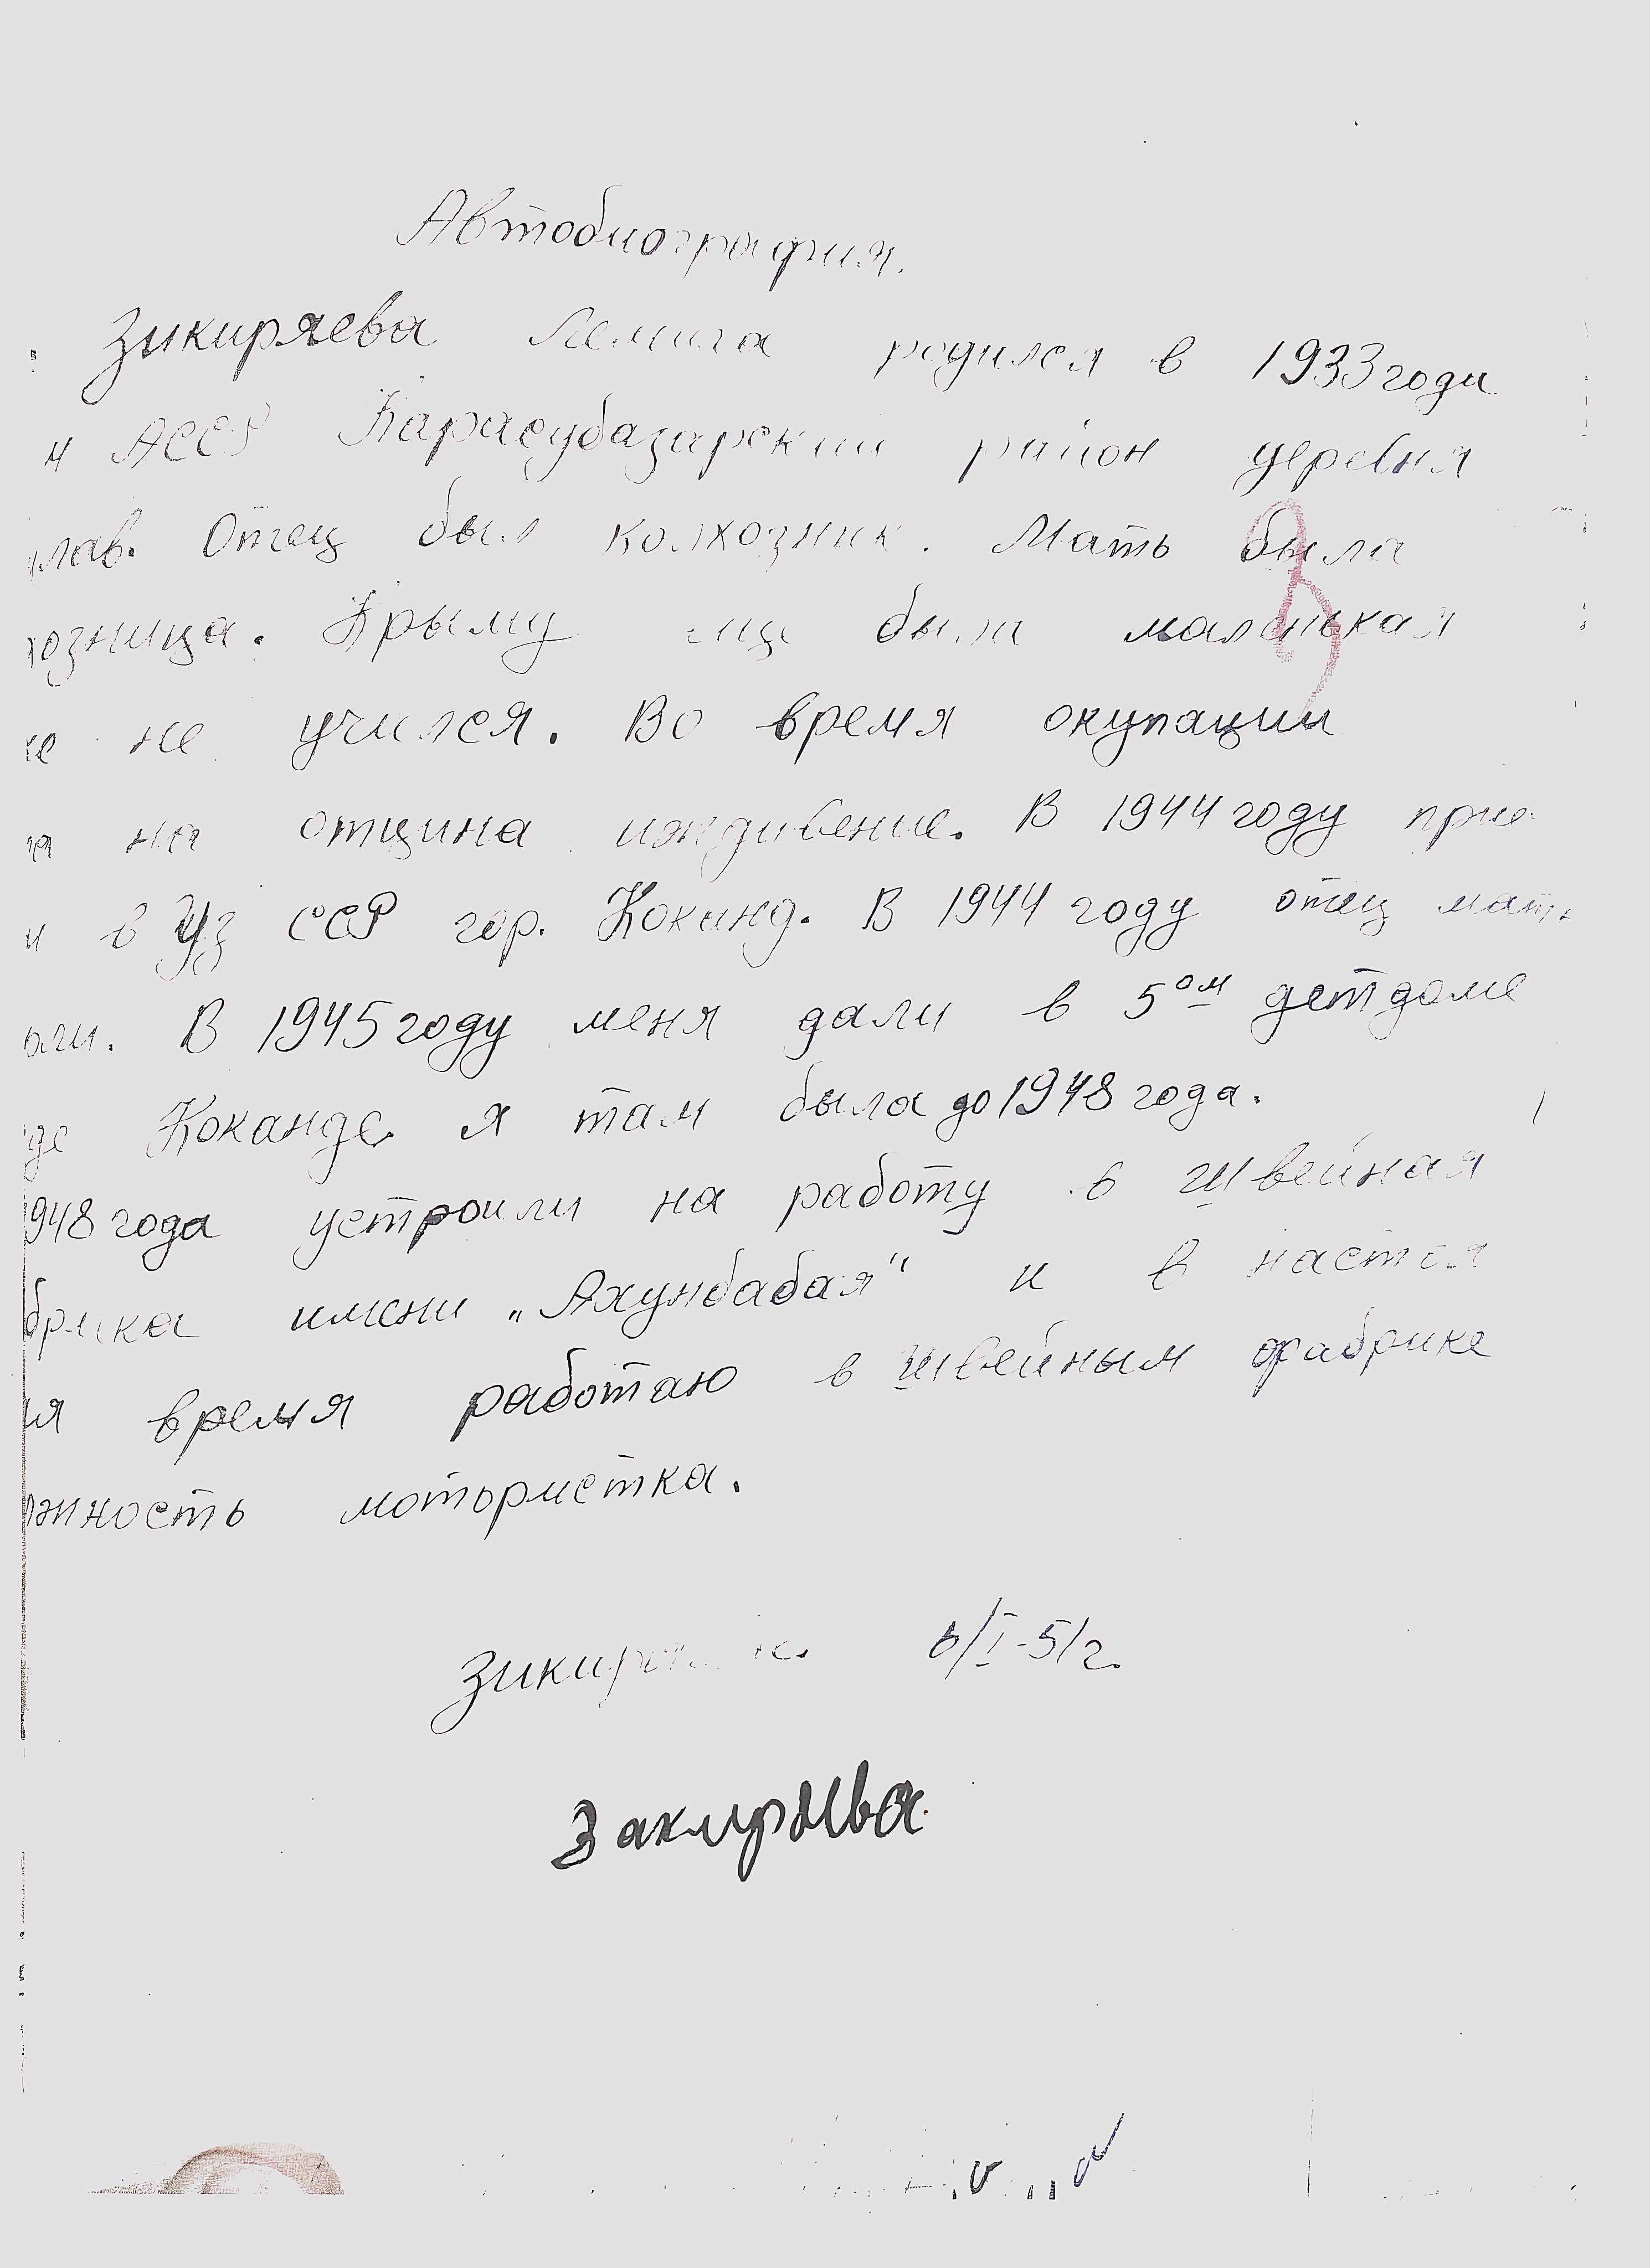 Автобиография.
Зикиряева родился в 1933 года
м АССР Карасубазарский район деревня
лав. Отец был колхозник. Мать была
хозница. Крыму еще была маленькая
же не учился. Во время окупации
на отцина иждивение. В 1944 году прие
и в Уз ССР гор. Коканд. В 1944 году отец мать
рли. В 1945 году меня дали в 5ом детдоме
де Коканде я там была до 1948 года.
948 года устроили на работу в швейная
брика имени „Ахунбабая" и в настоя
ия время работаю в швейным фабрике
лжность мотористка.
6/I-51г.
Закирыева